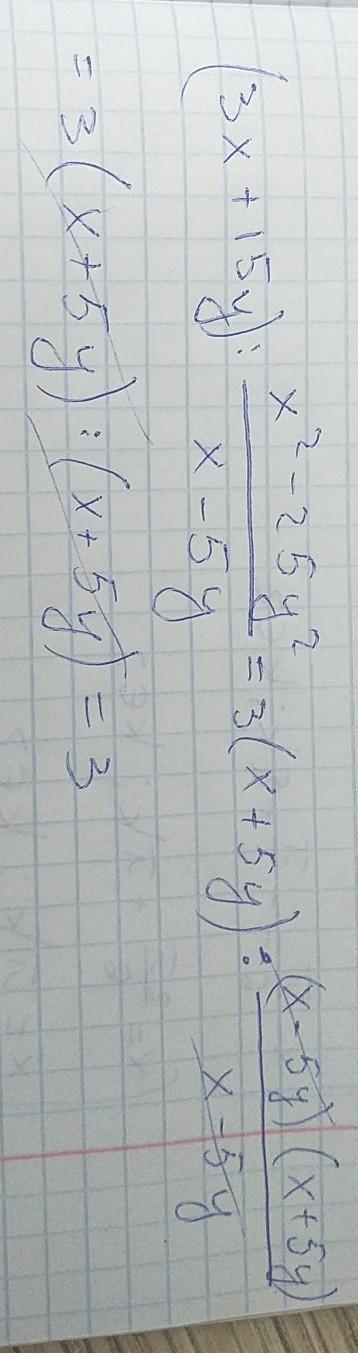 (3x + 15y) : \frac{x² - 25y²}{x - 5y} = 3(x + 5y) : \frac{(x - 5y)(x + 5y)}{x - 5y}
= 3(x + 5y) : (x + 5y) = 3